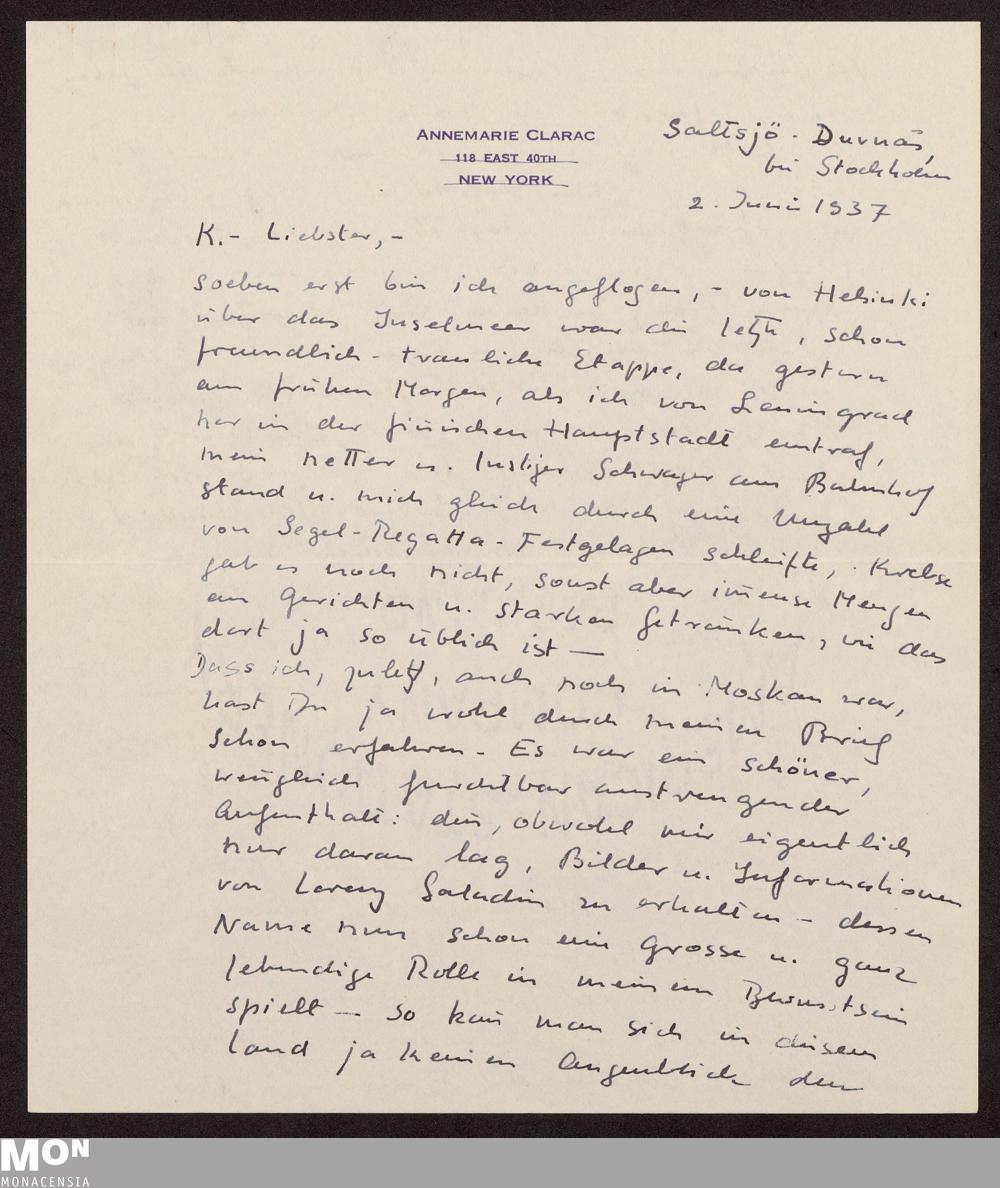 ANNEMARIE CLARAC
118 EAST 40TH
NEW YORK
Saltsjö - Duvnäs,
bei Stockholm
2. Juni 1937
K.- Liebster,-
soeben erst bin ich angeflogen,- von Helsinki
über das Inselmeer war die letzte, schon
freundlich-trauliche Etappe, da gestern
am frühen Morgen, als ich von Leningrad
her in der finnischen Hauptstadt eintraf,
mein netter u. lustiger Schwager am Bahnhof
stand u. mich gleich durch eine Unzahl
von Segel-Regatta-Festgelagen schleifte, Krebse
gab es noch nicht, sonst aber imense Mengen
an Gerichten u. starken Getränken, wie das
dort ja so üblich ist —
Dass ich, zuletzt, auch noch in Moskau war,
hast Du ja wohl durch meinen Brief
schon erfahren - Es war ein schöner,
wenngleich furchtbar anstrengender
Aufenthalt: denn, obwohl mir eigentlich
nur daran lag, Bilder u. Informationen
von Lorenz Saladin zu erhalten - dessen
Name nun schon eine grosse u. ganz
lebendige Rolle in meinem Bewusstsein
spielt — so kann man sich in diesem
Land ja keinen Augenblick den
MON
MONACENSIA